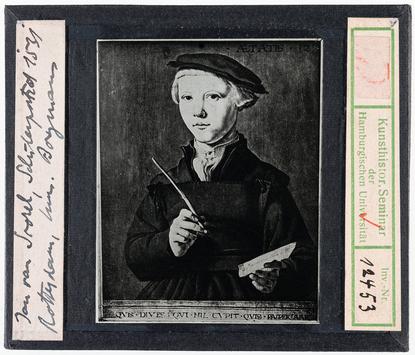 Jan van Scorel Schülerporträt 1531
Rotterdam, Mus. Boymans
ÆTATIS · 12
QVIS · DIVES · QVI · NIL · CVPIT · QVIS · PAVPER
Kunsthistor. Seminar
der
Hamburgischen Universität
Inv.-Nr.
12453